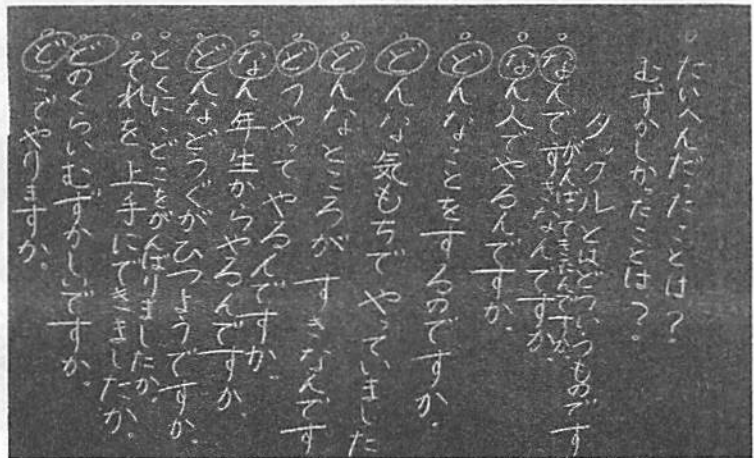 。たいへんだったことは？
むずかしかったことは？。
タックルとはどういうものです
がんばってきたんですか
。なんですきなんですか。
。なん人でやるんですか。
。どんなことをするのですか。
。どんな気もちでやっていました
。どんなところがすきなんです
。どうやってやるんですか。
。なん年生からやるんですか。
。どんなどうぐがひつようですか。
。とくに、どこをがんばりましたか。
。それを上手にできましたか。
。どのくらいむずかしいですか。
。どこでやりますか。